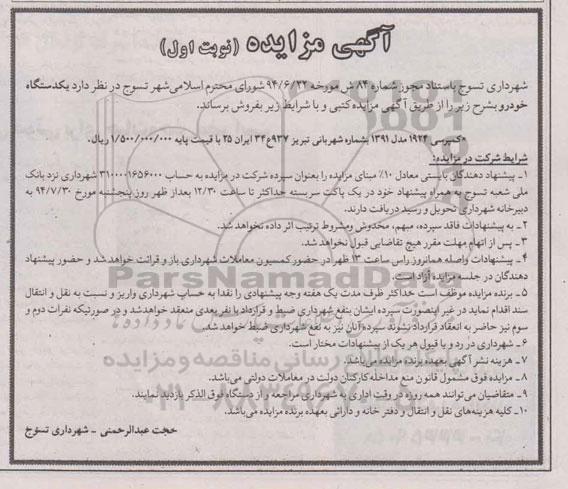 آگهی مزایده (نوبت اول)
شهرداری تسوج باستناد مجوز شماره ۸۴ ش مورخه ۹۴/۶/۲۲ شورای محترم اسلامی شهر تسوج در نظر دارد یکدستگاه
خودرو بشرح زیر را از طریق آگهی مزایده کتبی و با شرایط زیر بفروش برساند.
*کمپرسی ۱۹۲۴ مدل ۱۳۹۱ بشماره شهربانی تبریز ۹۳۷ع۳۴ ایران ۲۵ با قیمت پایه ۱/۵۰۰/۰۰۰/۰۰۰ ریال.
شرایط شرکت در مزایده:
۱ـ پیشنهاد دهندگان بایستی معادل ۱۰٪ مبنای مزایده را بعنوان سپرده شرکت در مزایده به حساب ۳۱۰۰۰۰۱۶۵۶۰۰۰ شهرداری نزد بانک
ملی شعبه تسوج به همراه پیشنهاد خود در یک پاکت سربسته حداکثر تا ساعت ۱۲/۳۰ بعداز ظهر روز پنجشنبه مورخ ۹۴/۷/۳۰ به
دبیرخانه شهرداری تحویل و رسید دریافت دارند.
۲ـ به پیشنهادات فاقد سپرده، مبهم، مخدوش ومشروط ترتیب اثر داده نخواهد شد.
۳ـ پس از اتمام مهلت مقرر هیچ تقاضایی قبول نخواهد شد.
۴ـ پیشنهادات واصله همانروز راس ساعت ۱۳ ظهر در حضور کمسیون معاملات شهرداری باز و قرائت خواهد شد و حضور پیشنهاد
دهندگان در جلسه مزایده آزاد است.
۵ـ برنده مزایده موظف است حداکثر ظرف مدت یک هفته وجه پیشنهادی را نقدا به حساب شهرداری واریز و نسبت به نقل و انتقال
سند اقدام نماید در غیر اینصورت سپرده ایشان بنفع شهرداری ضبط و قرارداد با نفر بعدی منعقد خواهد شد و در صورتیکه نفرات دوم و
سوم نیز حاضر به انعقاد قرارداد نشوند سپرده آنان نیز به نفع شهرداری ضبط خواهد شد.
۶ـ شهرداری در رد و یا قبول هر یک از پیشنهادات مختار است.
۷ـ هزینه نشر آگهی بعهده برنده مزایده می‌باشد.
۸ـ مزایده فوق مشمول قانون منع مداخله کارکنان دولت در معاملات دولتی می‌باشد.
۹ـ متقاضیان می‌توانند همه روزه در وقت اداری به شهرداری مراجعه و از دستگاه فوق الذکر بازدید نمایند.
۱۰ـ کلیه هزینه‌های نقل و انتقال و دفتر خانه و دارائی بعهده برنده مزایده می‌باشد.
حجت عبدالرحمنی ـ شهرداری تسوج
ParsNamadData
پایگاه اطلاع رسانی مناقصه و مزایده